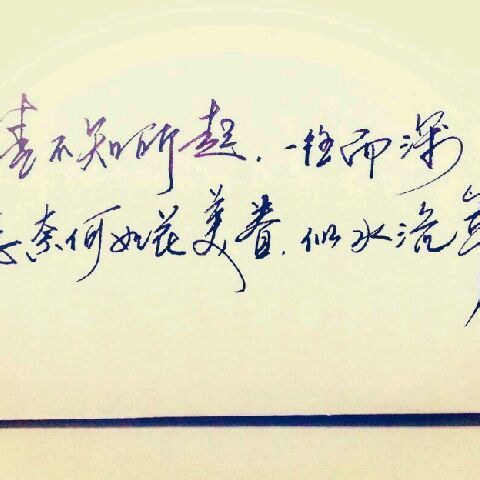 情不知所起，一往而深
奈何如花美眷，似水流